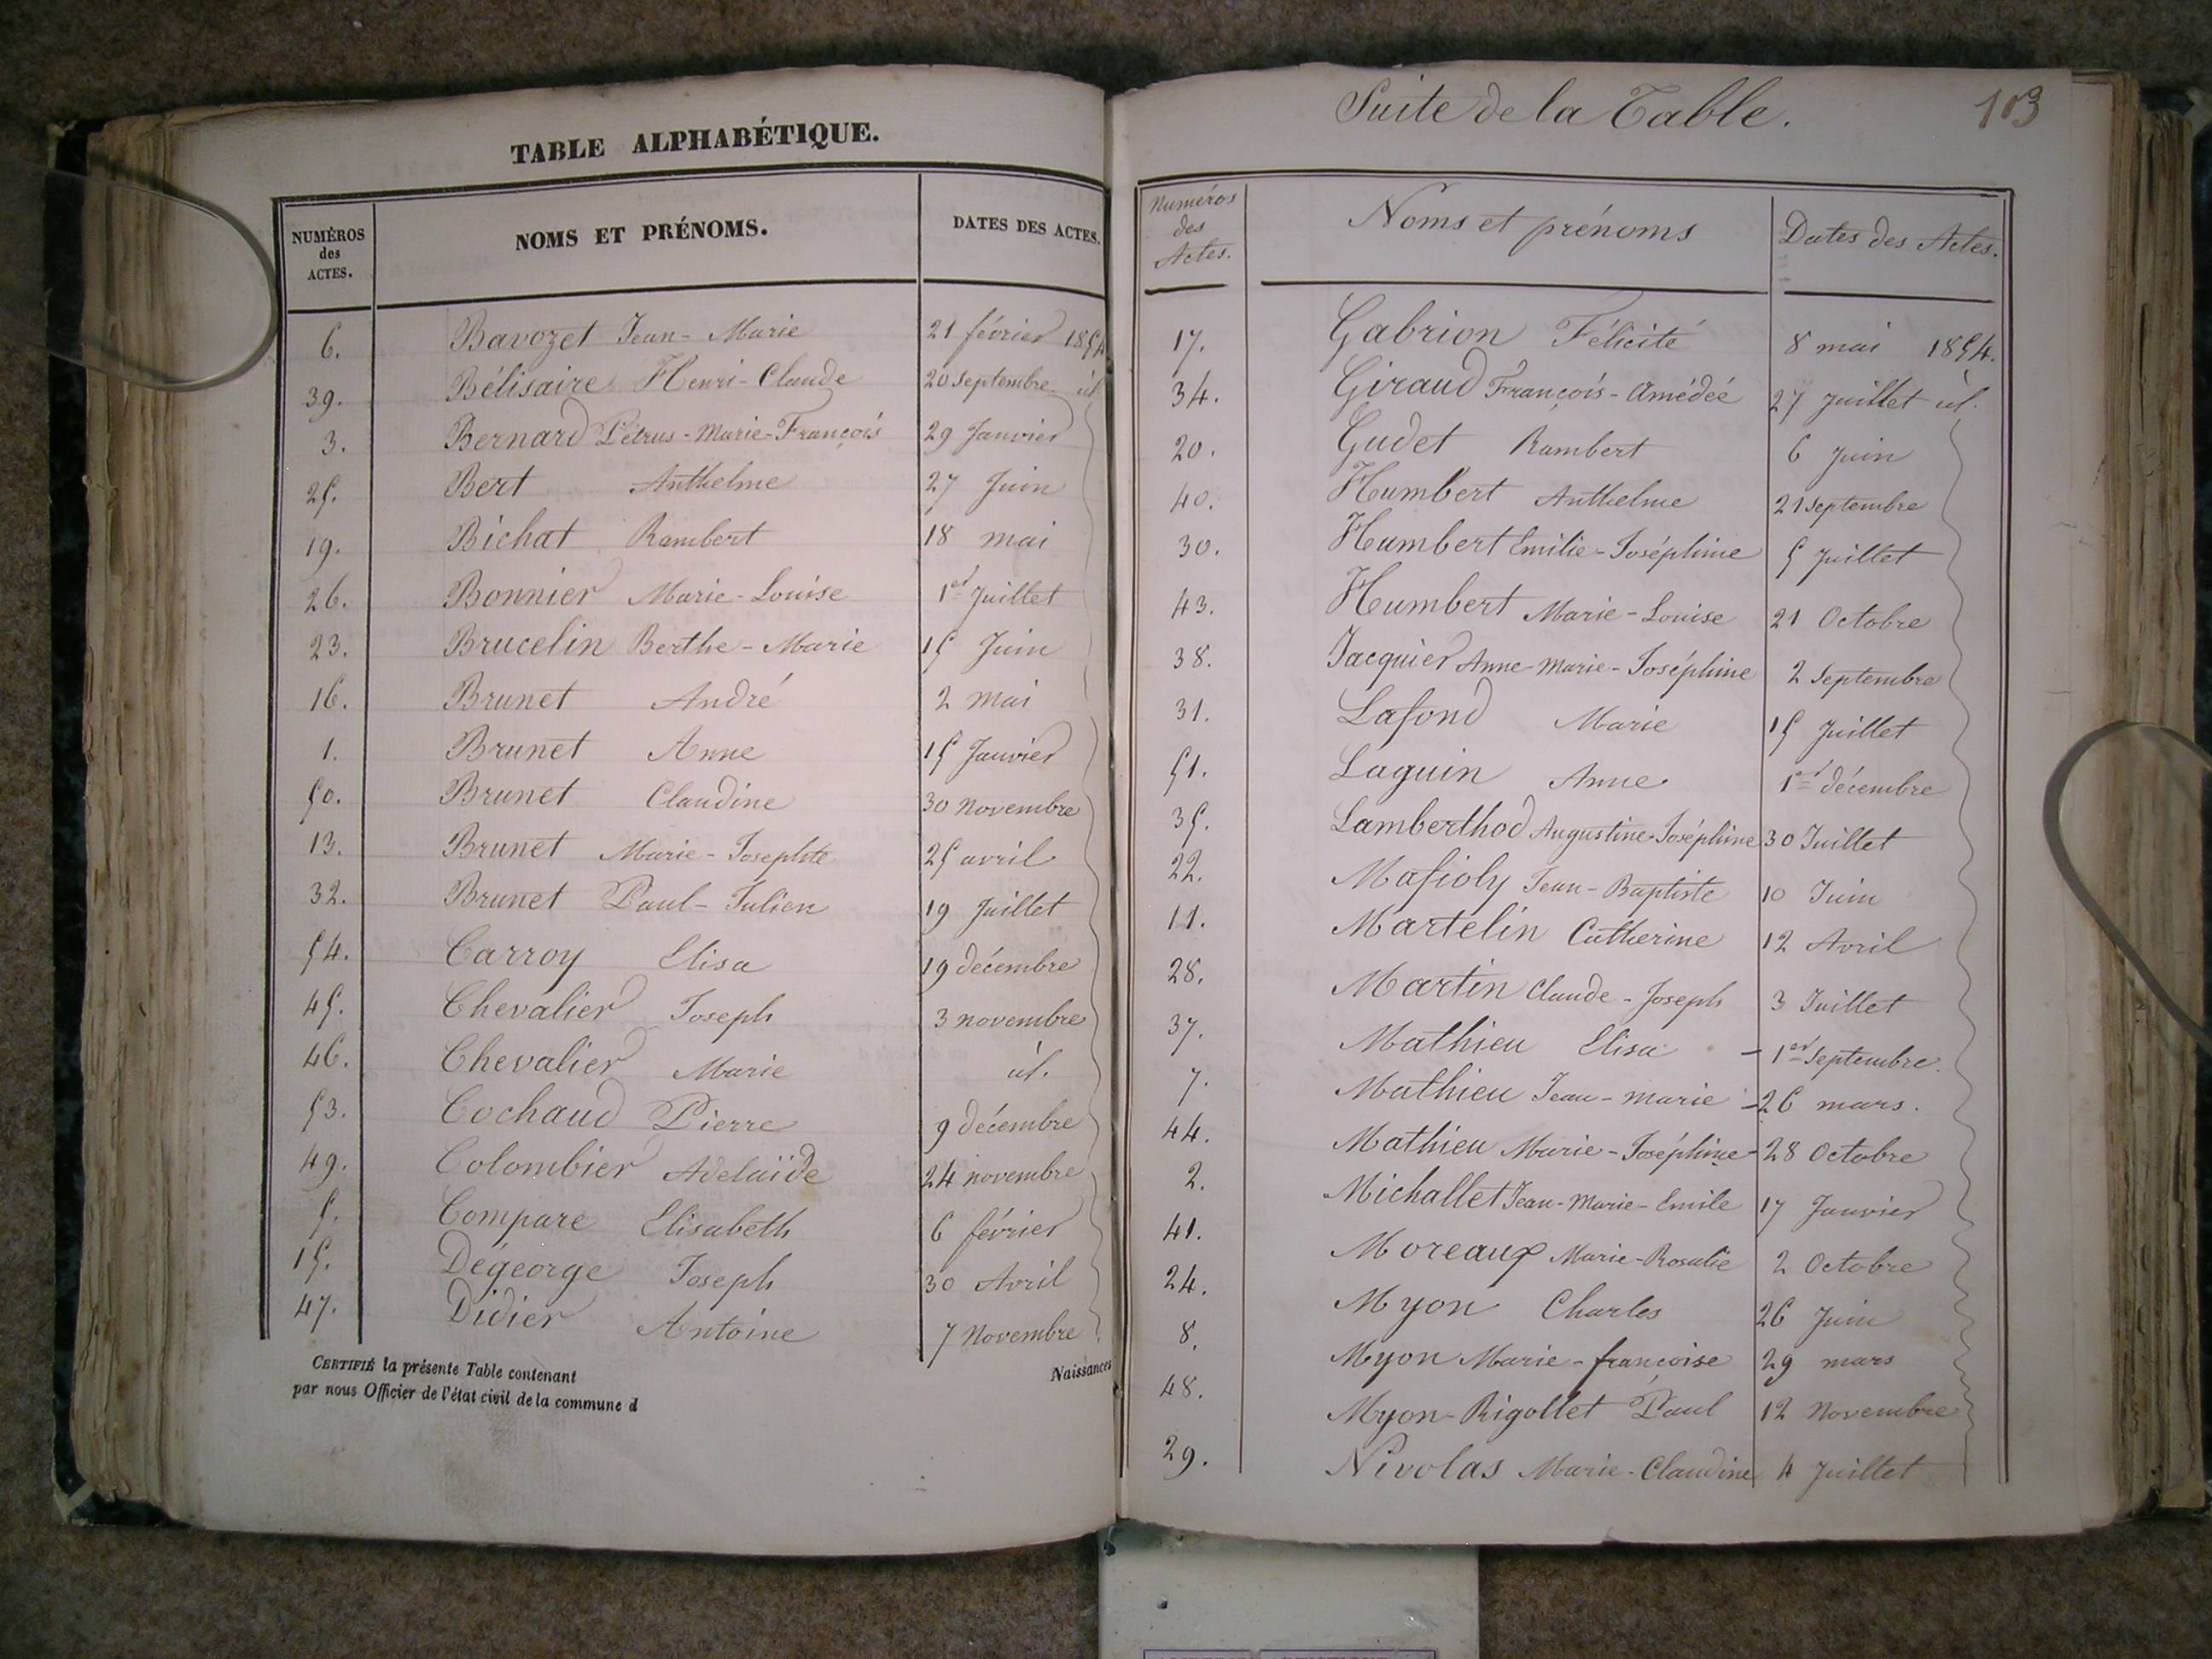 TABLE ALPHABÉTIQUE.
NUMÉROS des ACTES. NOMS ET PRÉNOMS. DATES DES ACTES.
6. Bavozet Jean-Marie 21 février 1854
39. Bélisaire Henri-Claude 20 Septembre id.
3. Bernard Pétrus-Marie-François 29 Janvier
25. Bert Anthelme 27 Juin
19. Bichat Rambert 18 mai
26. Bonnier Marie-Louise 1er Juillet
23. Brucelin Berthe-Marie 15 Juin
16. Brunet André 2 Mai
1. Brunet Anne 15 Janvier
50. Brunet Claudine 30 Novembre
13. Brunet Marie-Josephte 25 avril
32. Brunet Paul-Julien 19 Juillet
54. Carroy Elisa 19 décembre
45. Chevalier Joseph 3 novembre
46. Chevalier Marie id.
53. Cochaud Pierre 9 décembre
49. Colombier Adelaïde 24 novembre
5. Compare Elisabeth 6 février
15. Dégeorge Joseph 30 Avril
47. Didier Antoine 7 Novembre
CERTIFIÉ la présente Table contenant Naissances
par nous Officier de l'état civil de la commune d
Suite de la Table. 103
Numéros des Actes. Noms et prénoms Dates des Actes.
17. Gabrion Félicité 8 mai 1854.
34. Giraud François-Amédée 27 Juillet id.
20. Gudet Rambert 6 Juin
40. Humbert Anthelme 21 Septembre
30. Humbert Emilie-Joséphine 5 Juillet
43. Humbert Marie-Louise 21 Octobre
38. Jacquier Anne-Marie-Joséphine 2 Septembre
31. Lafond Marie 15 Juillet
51. Laguin Anne 1er décembre
35. Lamberthod Augustine-Joséphine 30 Juillet
22. Mafioly Jean-Baptiste 10 Juin
11. Martelin Catherine 12 Avril
28. Martin Claude-Joseph 3 Juillet
37. Mathieu Elisa - 1er Septembre.
7. Mathieu Jean-marie - 26 mars.
44. Mathieu Marie-Joséphine - 28 Octobre
2. Michallet Jean-Marie-Emile 17 Janvier
41. Moreaux Marie-Rosalie 2 Octobre
24. Myon Charles 26 Juin
8. Myon Marie-françoise 29 mars
48. Myon-Rigollet Paul 12 Novembre
29. Nivolas Marie-Claudine 4 Juillet